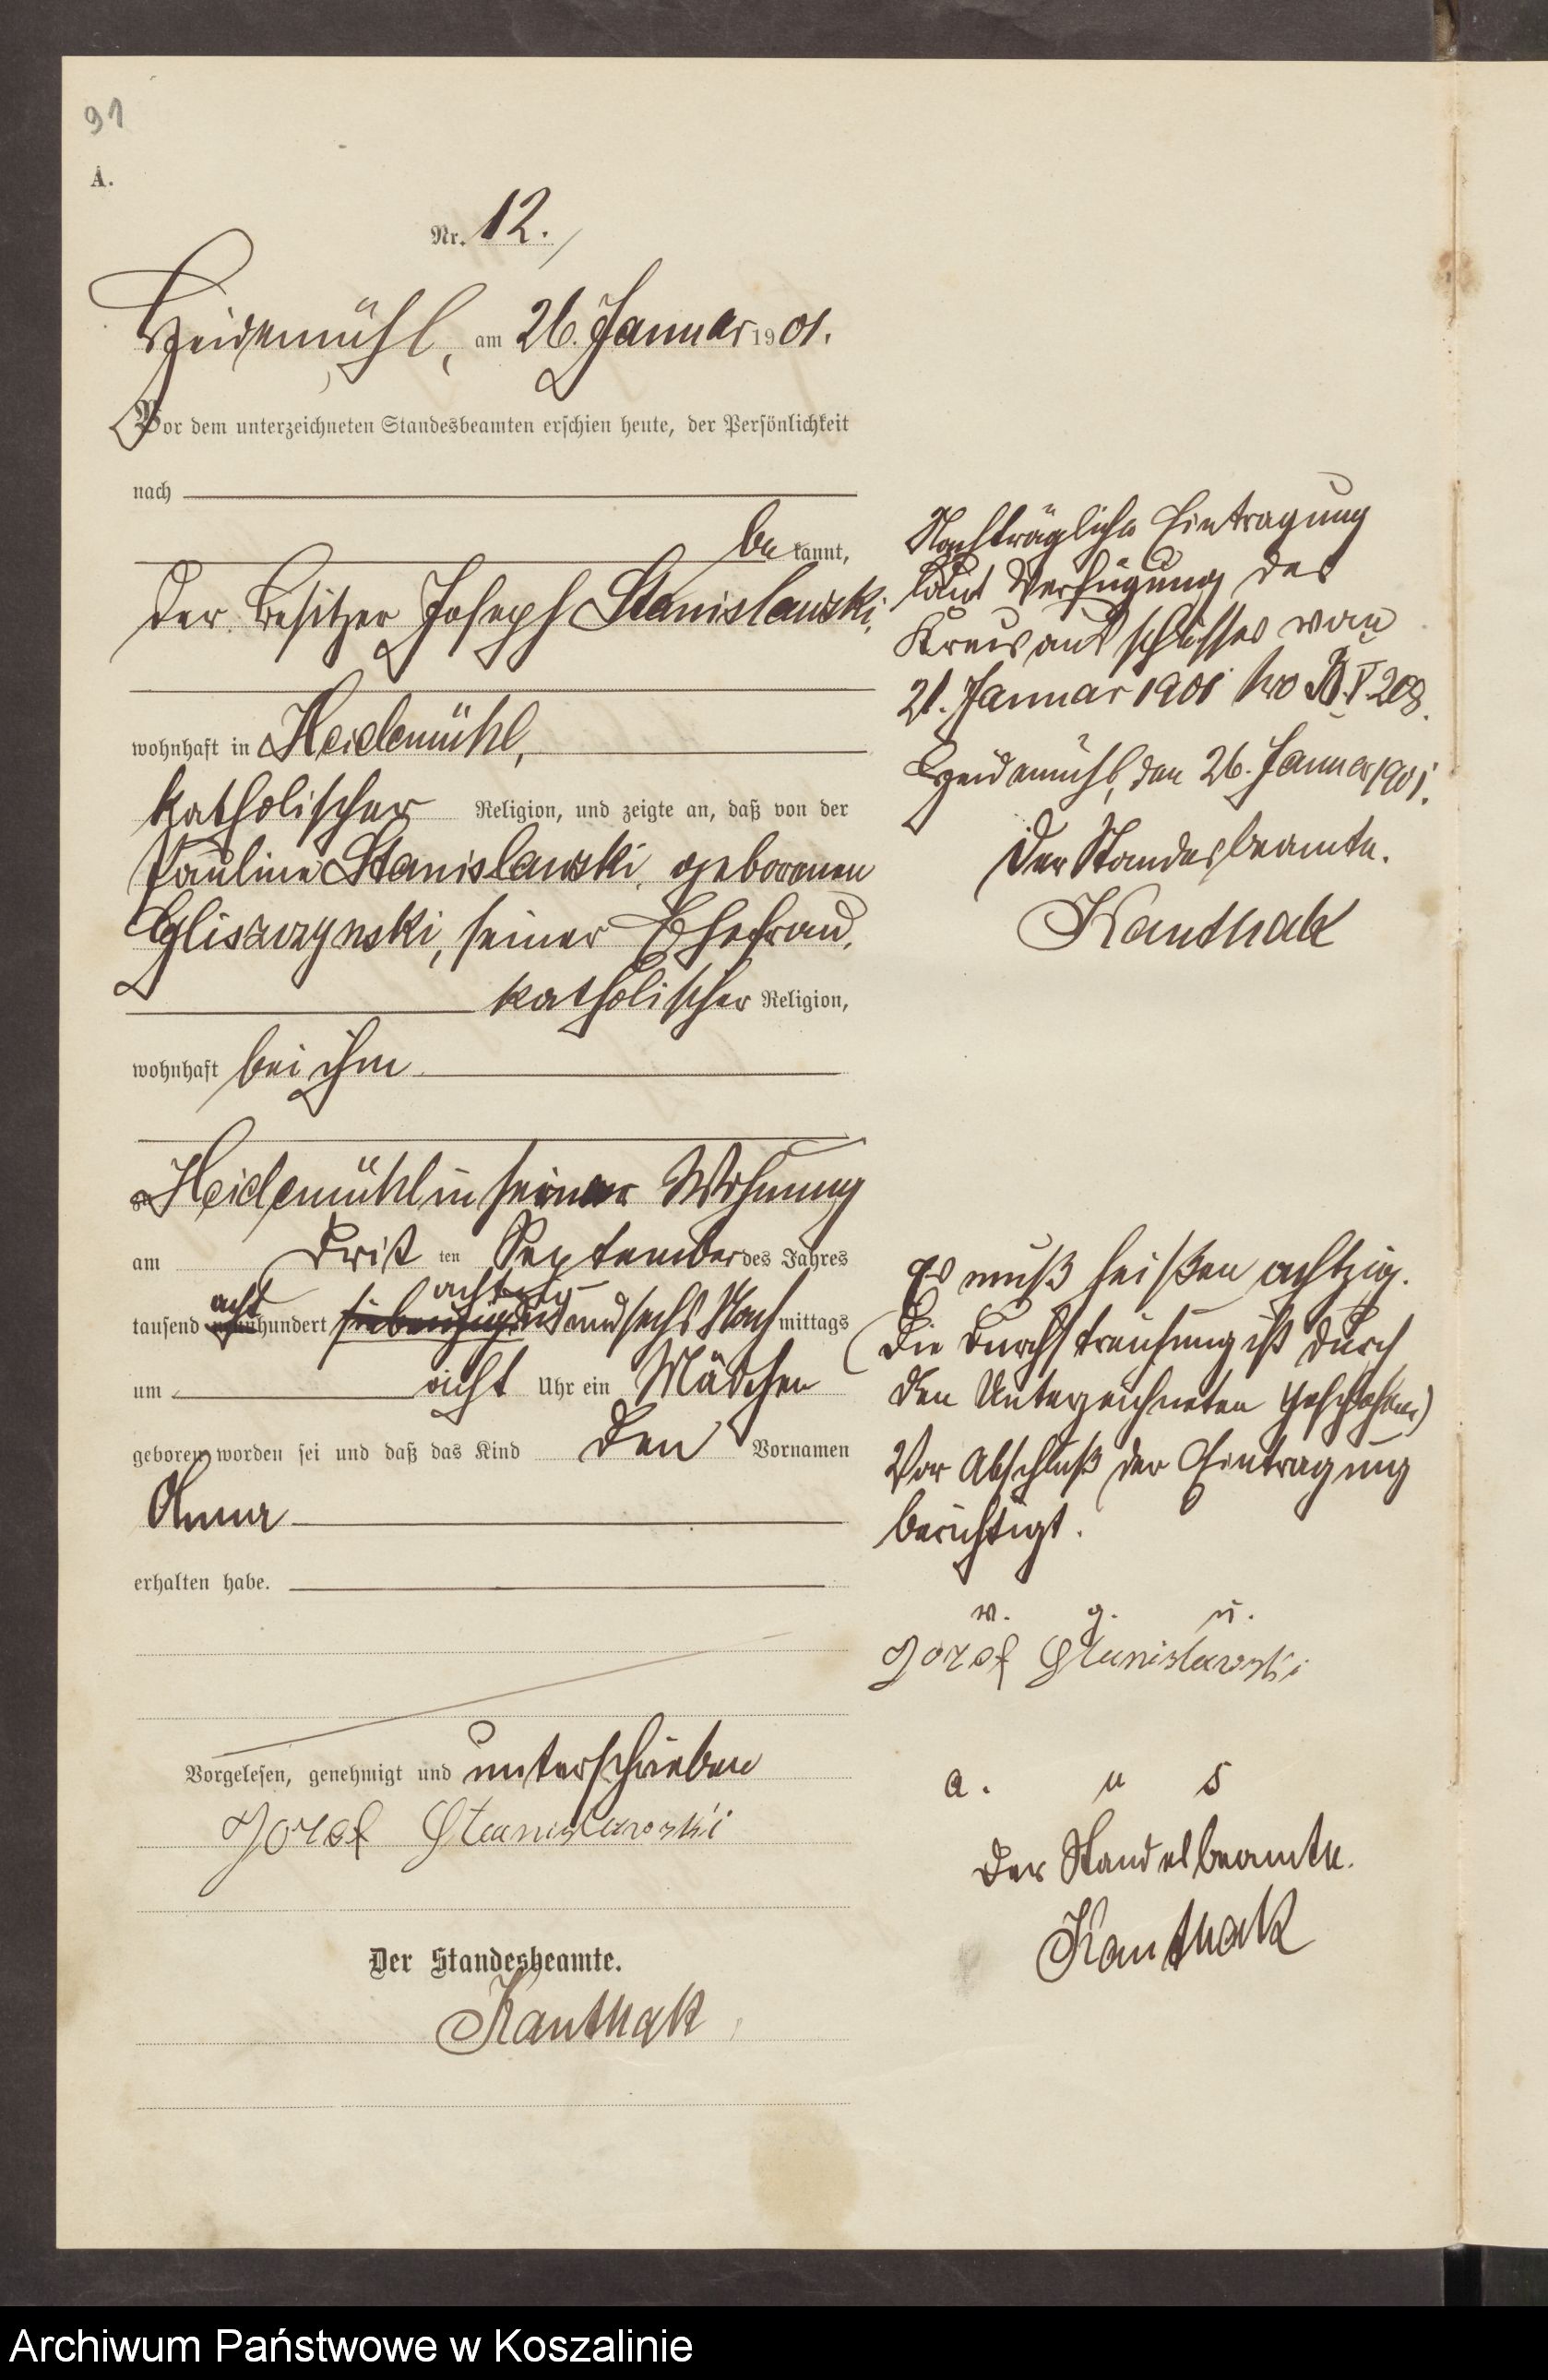 91
A.
Nr. 12.
Heidemühl, am 26. Januar 1901.
Vor dem unterzeichneten Standesbeamten erschien heute, der Persönlichkeit
nach
be kannt,
der Besitzer Joseph Stanislawski,
wohnhaft in Heidemühl,
katholischer Religion, und zeigte an, daß von der
Pauline Stanislawski, geborenen
Gliszczynski, seiner Ehefrau,
katholischer Religion,
wohnhaft bei ihm
zu Heidemühl in seiner Wohnung
am dritt ten September des Jahres
achtzig
acht
tausend neunhundert siebenzig und sechs Nach mittags
um acht Uhr ein Mädchen
geboren worden sei und daß das Kind den Vornamen
Anna
erhalten habe.
Vorgelesen, genehmigt und unterschrieben
Jozef Stanislawski
Der Standesbeamte.
Kanthak
Nachträgliche Eintragung
laut Verfügung des
Kreisausschusses vom
21. Januar 1901 No 208.
Heidemühl, den 26. Januar 1901.
Der Standesbeamte.
Kanthak
Es muß heißen achtzig.
(Die Durchstreichung ist durch
den Unterzeichneten geschehen)
Vor Abschluß der Eintragung
berichtigt.
v. g. u.
Jozef Stanislawski
a. u s
Der Standesbeamte.
Kanthak
Archiwum Państwowe w Koszalinie